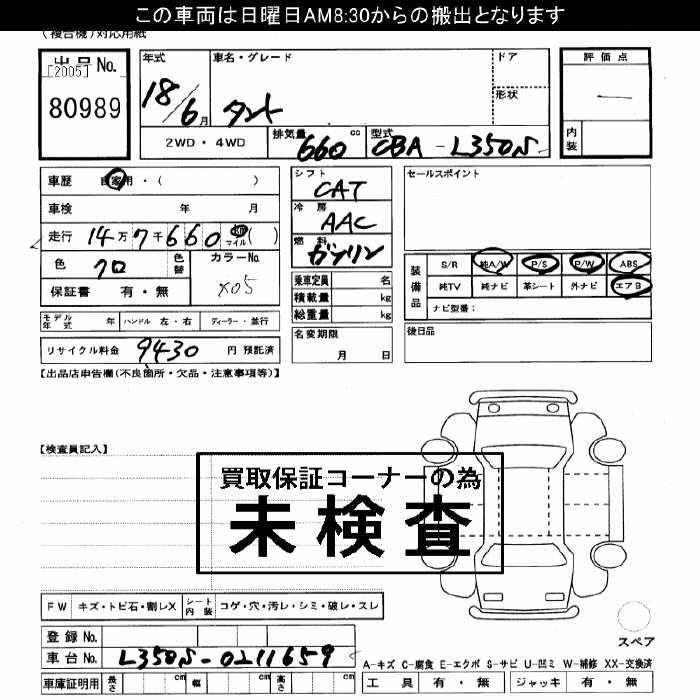 この車両は日曜日AM8:30からの搬出となります
(複合機)対応用紙
出品No.
[2005]
80989
年式 車名・グレード ドア
18/6月 タント 形状
2WD・4WD 排気量 660 cc 型式 CBA-L350S
評価点
―
内装
車歴 自家用・( )
車検 年 月
走行 14万7千660 km マイル ( )
色 クロ 色替 カラーNo. X05
保証書 有・無
モデル年式 年 ハンドル 左・右 ディーラー・並行
リサイクル料金 9430 円 預託済
シフト CAT
冷房 AAC
燃料 ガソリン
乗車定員 名
積載量 kg
総重量 kg
名変期限
月 日
セールスポイント
装備品 S/R 純A/W P/S P/W ABS
純TV 純ナビ 革シート 外ナビ エアB
ナビ型番:
後日品
【出品店申告欄(不良箇所・欠品・注意事項等)】
【検査員記入】
買取保証コーナーの為
未検査
FW キズ・トビ石・割レX シート内装 コゲ・穴・汚レ・シミ・破レ・スレ
登録No.
車台No. L350S-0211659
車庫証明用 長さ cm 幅 cm 高さ cm
スペア
A-キズ C-腐食 E-エクボ S-サビ U-凹ミ W-補修 XX-交換済
工具 有・無 ジャッキ 有・無